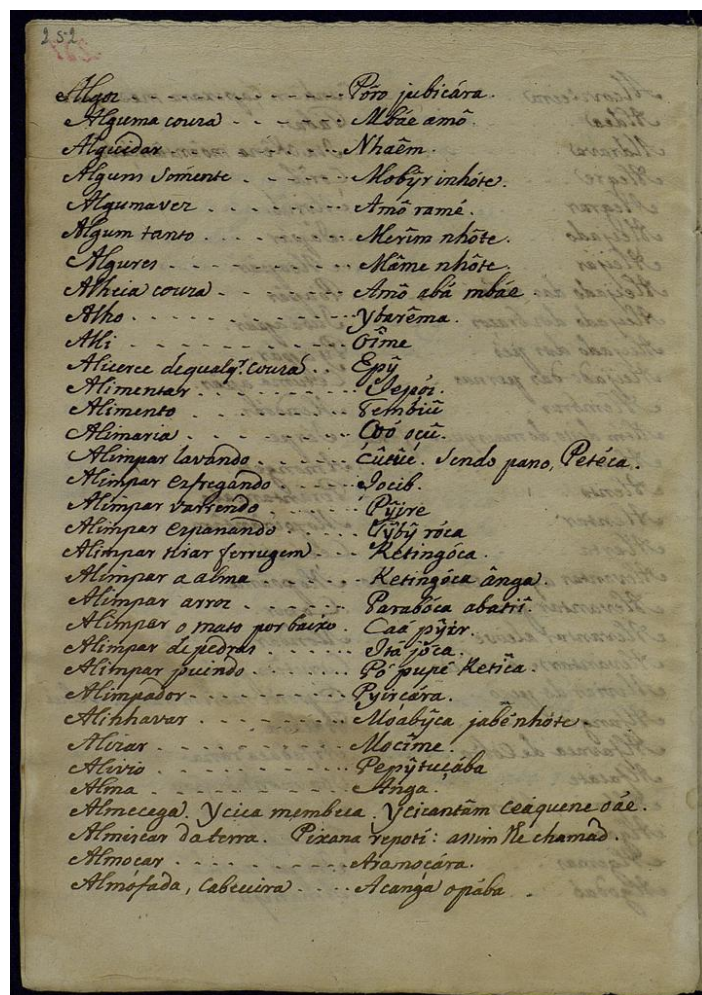 252
Algoz - - - - - - - - - Pôro jubicára.
Alguma couza . . . . . . Mbáe amõ.
Alguidar . . . . . . . . Nhaẽm.
Alguns somente . . . . . Mobỹr inhóte.
Alguma vez . . . . . . . Amõ ramé.
Algum tanto . . . . . . Merĩm nhõte.
Algures . . . . . . . . Mãme nhõte.
Alheia couza . . . . . . Amõ abá mbáe.
Alho . . . . . . . . . . Ybarẽma.
Alli . . . . . . . . . . Oĩme
Alicerce de qualq.r couza . . Epỹ
Alimentar . . . . . . . . Jepói.
Alimento . . . . . . . . Tembiũ
Alimaria . . . . . . . . Çoó oçũ.
Alimpar lavando . . . . . Cũtũc. sendo pano, Petéca.
Alimpar esfregando . . . . Jocib.
Alimpar varrendo . . . . . Pỹire
Alimpar espanando . . . . Tỹbỹ róca
Alimpar tirar ferrugem . . . Ketingóca.
Alimpar a alma . . . . . Ketingóca ânga.
Alimpar arroz . . . . . . Parabóca abatií.
Alimpar o mato por baixo . Caá pỹir.
Alimpar de pedras . . . . Itá jõca.
Alimpar puindo . . . . . Pó pupé Ketĩca.
Alimpador . . . . . . . Pyircára.
Alinhavar . . . . . . . Moabỹca jabé nhóte.
Aliviar . . . . . . . . Mocĩme.
Alivio . . . . . . . . . Pepỹtuçába
Alma . . . . . . . . . . Anga.
Almecega. Ycica membeca. Ycicantãm ceáquene oáe.
Almiscar da terra. Pixana repoti: assim lhe chamaõ.
Almoçar . . . . . . . . Aranoçára.
Almofada, Cabeceira . . . . Acángá opába.